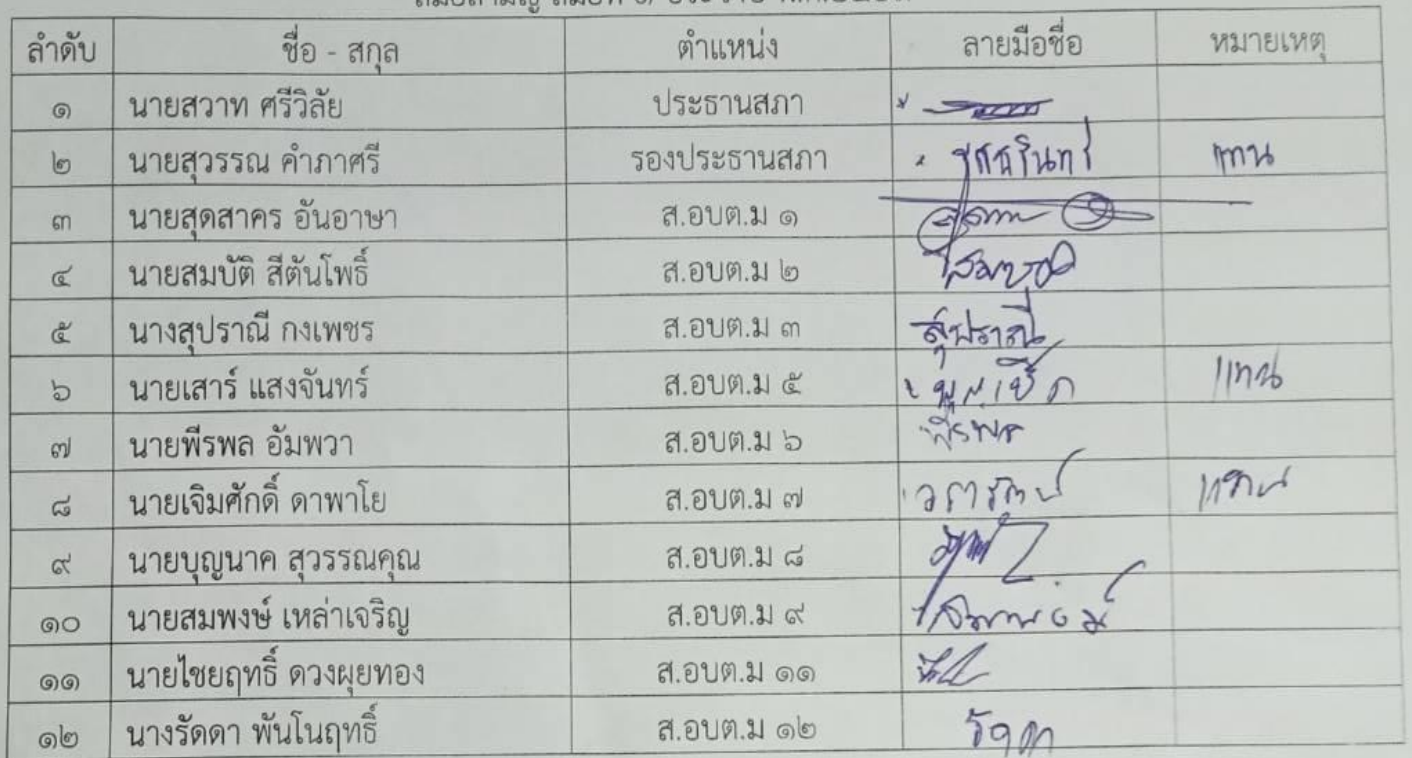 ลำดับ ชื่อ - สกุล ตำแหน่ง ลายมือชื่อ หมายเหตุ
๑ นายสวาท ศรีวิลัย ประธานสภา
๒ นายสุวรรณ คำภาศรี รองประธานสภา แทน
๓ นายสุดสาคร อันอาษา ส.อบต.ม ๑
๔ นายสมบัติ สีตันโพธิ์ ส.อบต.ม ๒ สมบัติ
๕ นางสุปราณี กงเพชร ส.อบต.ม ๓ สุปราณี
๖ นายเสาร์ แสงจันทร์ ส.อบต.ม ๕ แทน
๗ นายพีรพล อัมพวา ส.อบต.ม ๖ พีรพล
๘ นายเจิมศักดิ์ ดาพาโย ส.อบต.ม ๗ แทน
๙ นายบุญนาค สุวรรณคุณ ส.อบต.ม ๘
๑๐ นายสมพงษ์ เหล่าเจริญ ส.อบต.ม ๙
๑๑ นายไชยฤทธิ์ ดวงผุยทอง ส.อบต.ม ๑๑
๑๒ นางรัดดา พันโนฤทธิ์ ส.อบต.ม ๑๒ รัดดา